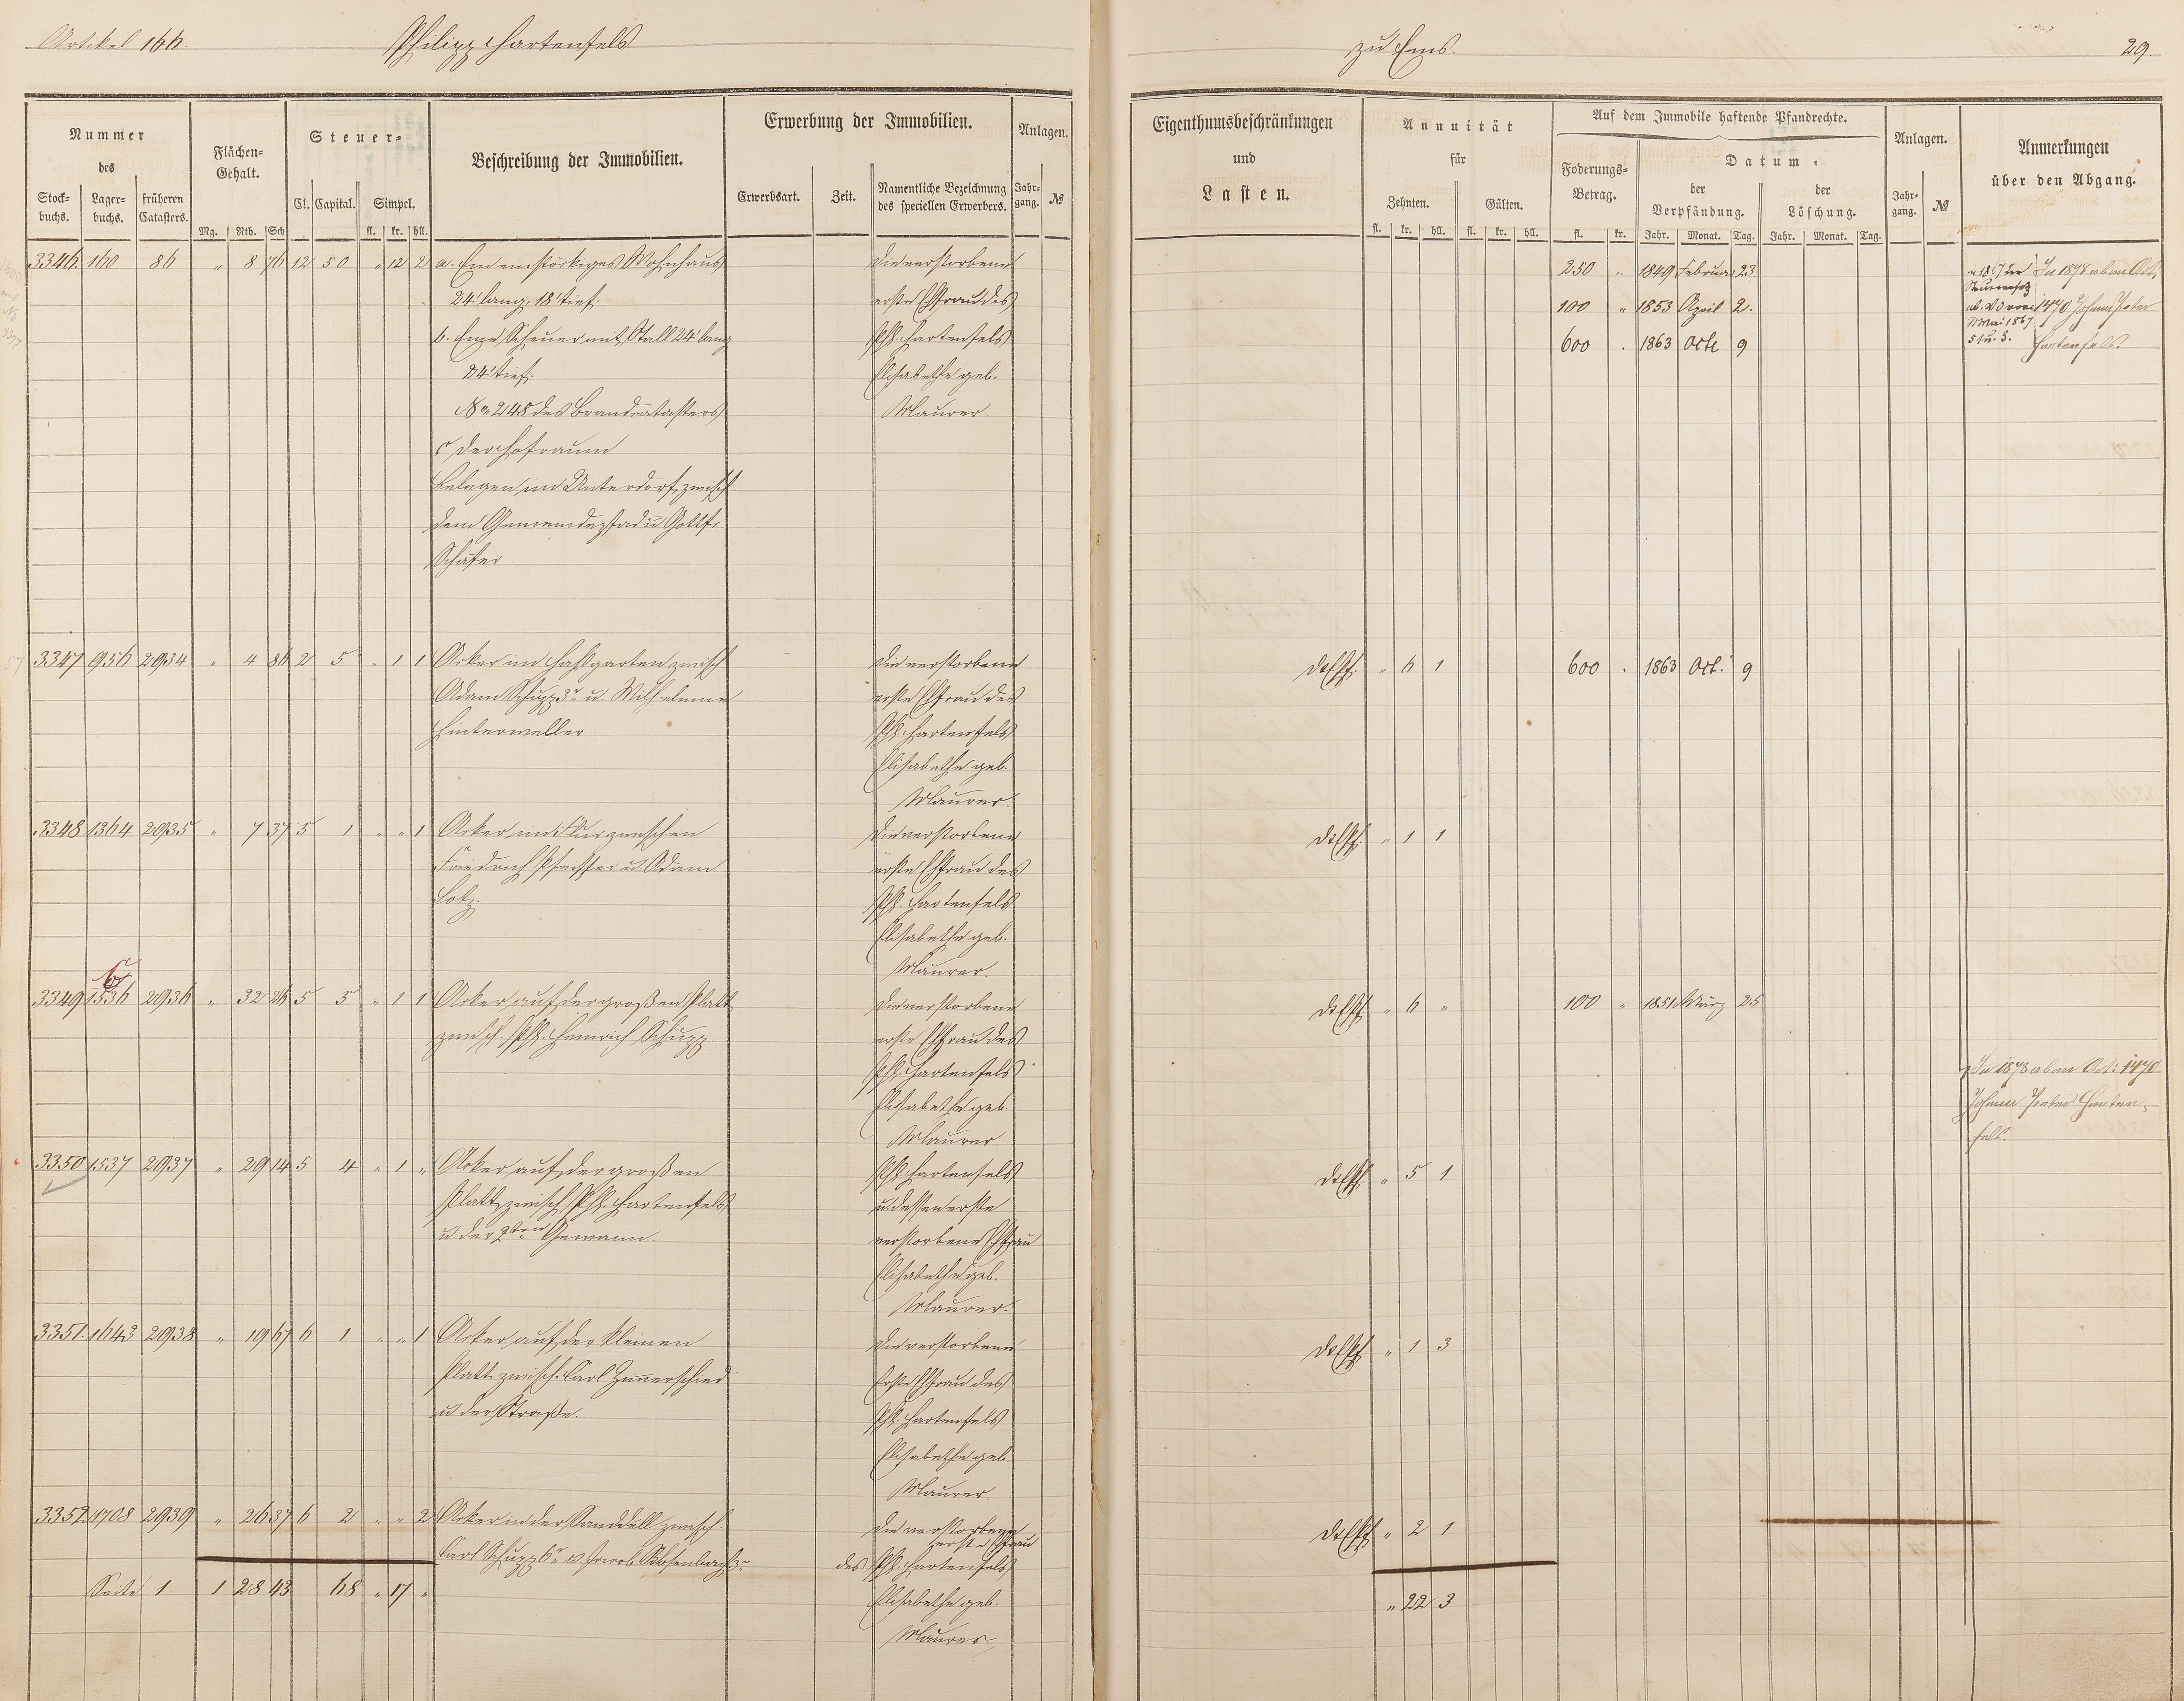 Artikel 166. Philipp Hartenfels zu Ems. 29
Nummer
des
Stock-
buchs.
Lager-
buchs.
früheren
Catasters.
Flächen-
Gehalt.
Mg. Rth. Sch
Steuer-
Cl. Capital. Simpel.
fl. kr. hll.
Beschreibung der Immobilien.
Erwerbung der Immobilien.
Erwerbsart. Zeit.
Namentliche Bezeichnung
des speciellen Erwerbers.
Anlagen.
Jahr-
gang. №
Eigenthumsbeschränkungen
und
Lasten.
Annuität
für
Zehnten. Gülten.
fl. kr. hll. fl. kr. hll.
Auf dem Immobile haftende Pfandrechte.
Foderungs-
Betrag.
fl. kr.
Datum.
der
Verpfändung.
Jahr. Monat. Tag.
der
Löschung.
Jahr. Monat. Tag.
Anlagen.
Jahr-
gang. №
Anmerkungen
über den Abgang.
3346. 160 86 " 8 76 12 50 " 12 2 a. Ein einstöckiges Wohnhaus
24' lang, 18' tief.
b. Eine Scheuer mit Stall 24' lang
24' tief.
No 248 des Brandcatasters
c der Hofraum
Belegen im Unterdorf zwisch
dem Gemeindepfad u Gottfr.
Schäfer
Die verstorbene
erste Ehfrau des
Ph. Hartenfels
Elisabethe geb.
Maurer.
250 " 1849 Februar 23
100 " 1853 April 2.
600 . 1863 Octb 9
In 1878 ab an Art.
1470 Johann Peter
Hartenfels.
3347 956 2934 " 4 86 2 5 " 1 1 Acker im Hahlgarten zwisch
Adam Schupp 3r u Wilhelmine
Hinterweller
Die verstorbene
erste Ehfrau des
Ph. Hartenfels
Elisabethe geb.
Maurer.
" 6 1 600 . 1863 Oct. 9
3348 1364 2935 " 7 37 5 1 " " 1 Acker im Flur zwischen
Friedrich Pfeiffer u Adam
Lotz.
Die verstorbene
erste Ehfrau des
Ph. Hartenfels
Elisabethe geb.
Maurer.
" 1 1
6
3349 1536 2936 " 32 26 5 5 " 1 1 Acker auf der großen Platt
zwisch Ph. Heinrich Schupp
Die verstorbene
erste Ehfrau des
Ph. Hartenfels
Elisabethe geb.
Maurer
" 6 " 100 " 1851 März 25
In 1878 ab an Art. 1470
Johann Peter Harten-
fels.
3350 1537 2937 " 29 14 5 4 " 1 " Acker auf der großen
Platt zwisch Ph. Hartenfels
u der 2ten Gewann
Ph. Hartenfels
u. dessen erste
verstorbene Ehfrau
Elisabethe geb.
Maurer.
" 5 1
3351. 1643 2938 " 19 67 6 1 " " 1 Acker auf der kleinen
Platt zwisch. Carl Zimmerschied
u der Straße.
Die verstorbene
Erste Ehfrau des
Ph. Hartenfels
Elisabethe geb.
Maurer
" 1 3
3352 1708 2939 " 26 37 6 2 " " 2 Acker in der Sanddell zwisch.
Carl Schupp 6r u Jacob
Die verstorbene
erste Ehfrau
des Ph. Hartenfels
Elisabethe geb.
Maurer
" 2 1
Seite 1 1 28 43 68 " 17 "
" 22 3